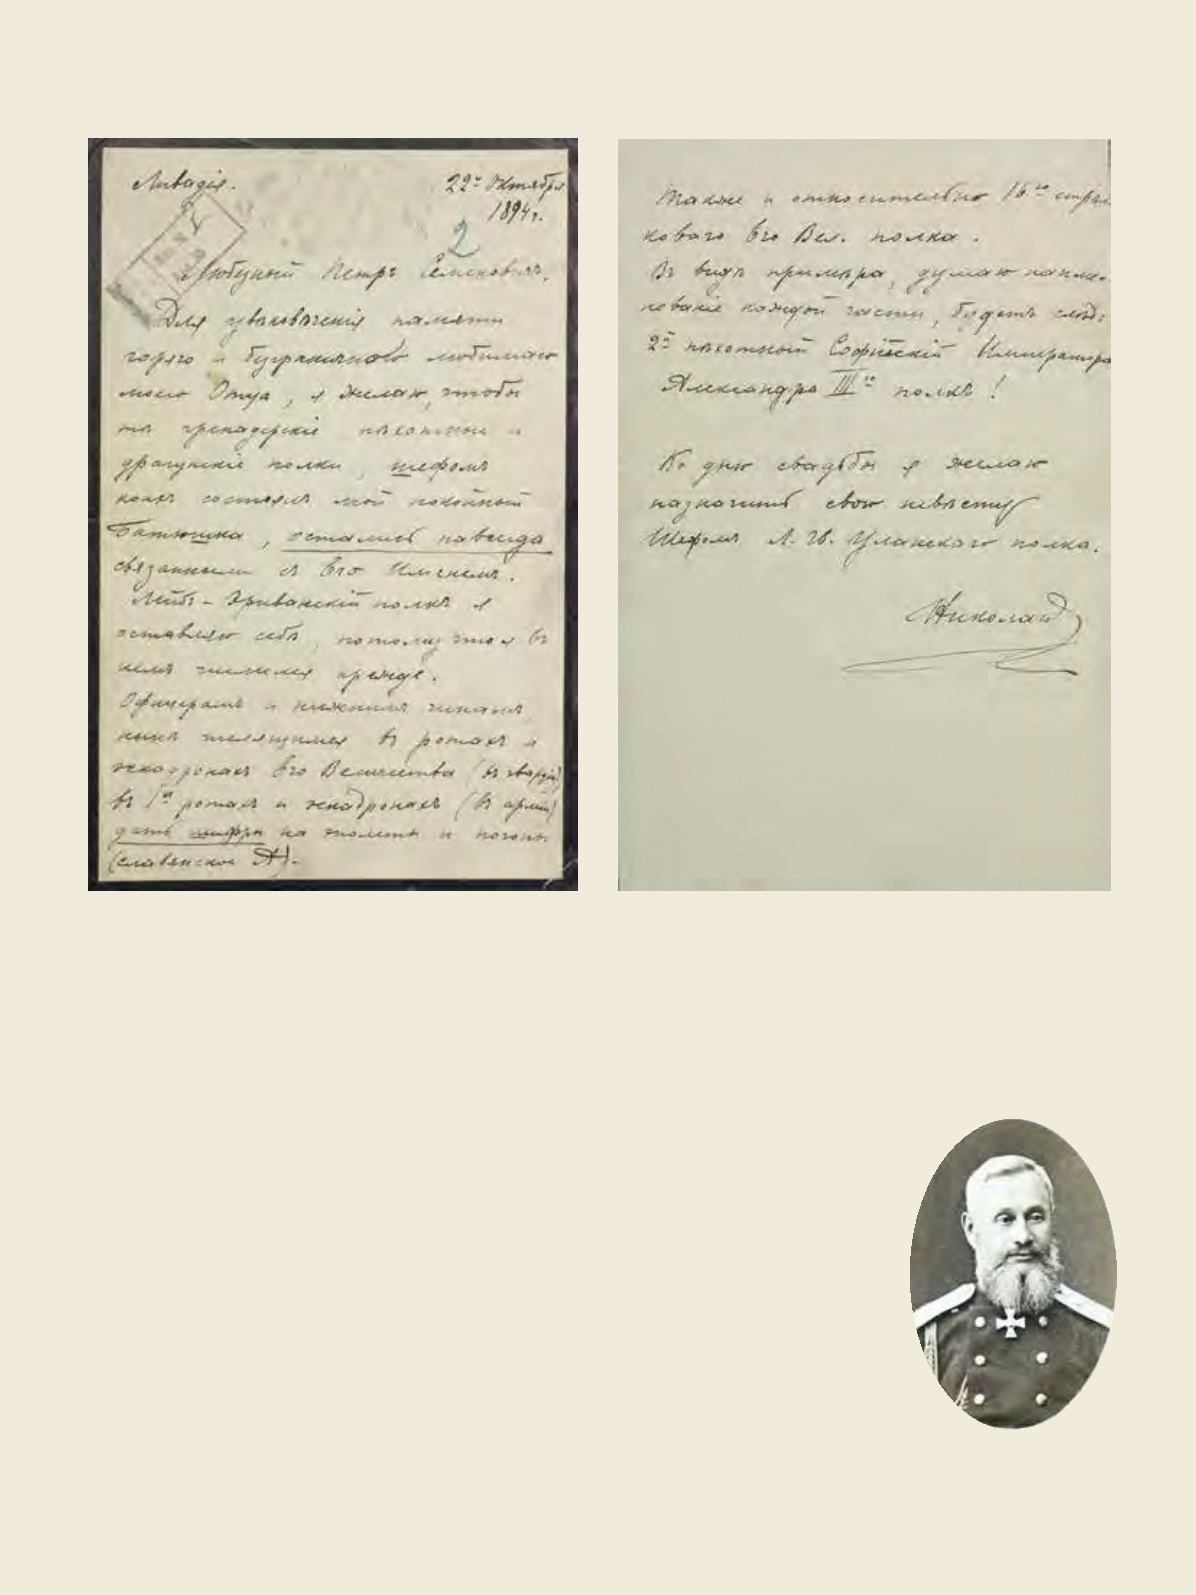 Ливадія.
22го Октября
1894 г.
2
Любезный Петръ Семеновичъ,
Для увѣковѣченія памяти
горячо и безгранично любимаго
моего Отца, я желаю, чтобы
тѣ гренадерскіе пѣхотные и
драгунскіе полки, шефомъ
коихъ состоялъ мой покойный
Батюшка, остались навсегда
связанными съ Его Именемъ.
Лейбъ-Эриванскій полкъ я
оставляю себѣ, потому что я въ
немъ числился прежде.
Офицерамъ и нижнимъ чинамъ,
нынѣ числящимся въ ротахъ и
эскадронахъ Его Величества (въ гвардіи)
въ 1хъ ротахъ и эскадронахъ (въ арміи)
дать шифры на эполеты и погоны
(славянское А).
Также и относительно 16го стрѣл
коваго Его Вел. полка.
Въ видѣ примѣра, думаю наиме-
нованіе каждой части, будетъ слѣд:
2й пѣхотный Софійскій Императора
Александра IIIго полкъ!
Ко дню свадьбы я желаю
назначить свою невѣсту
Шефомъ Л. Гв. Уланскаго полка.
Николай